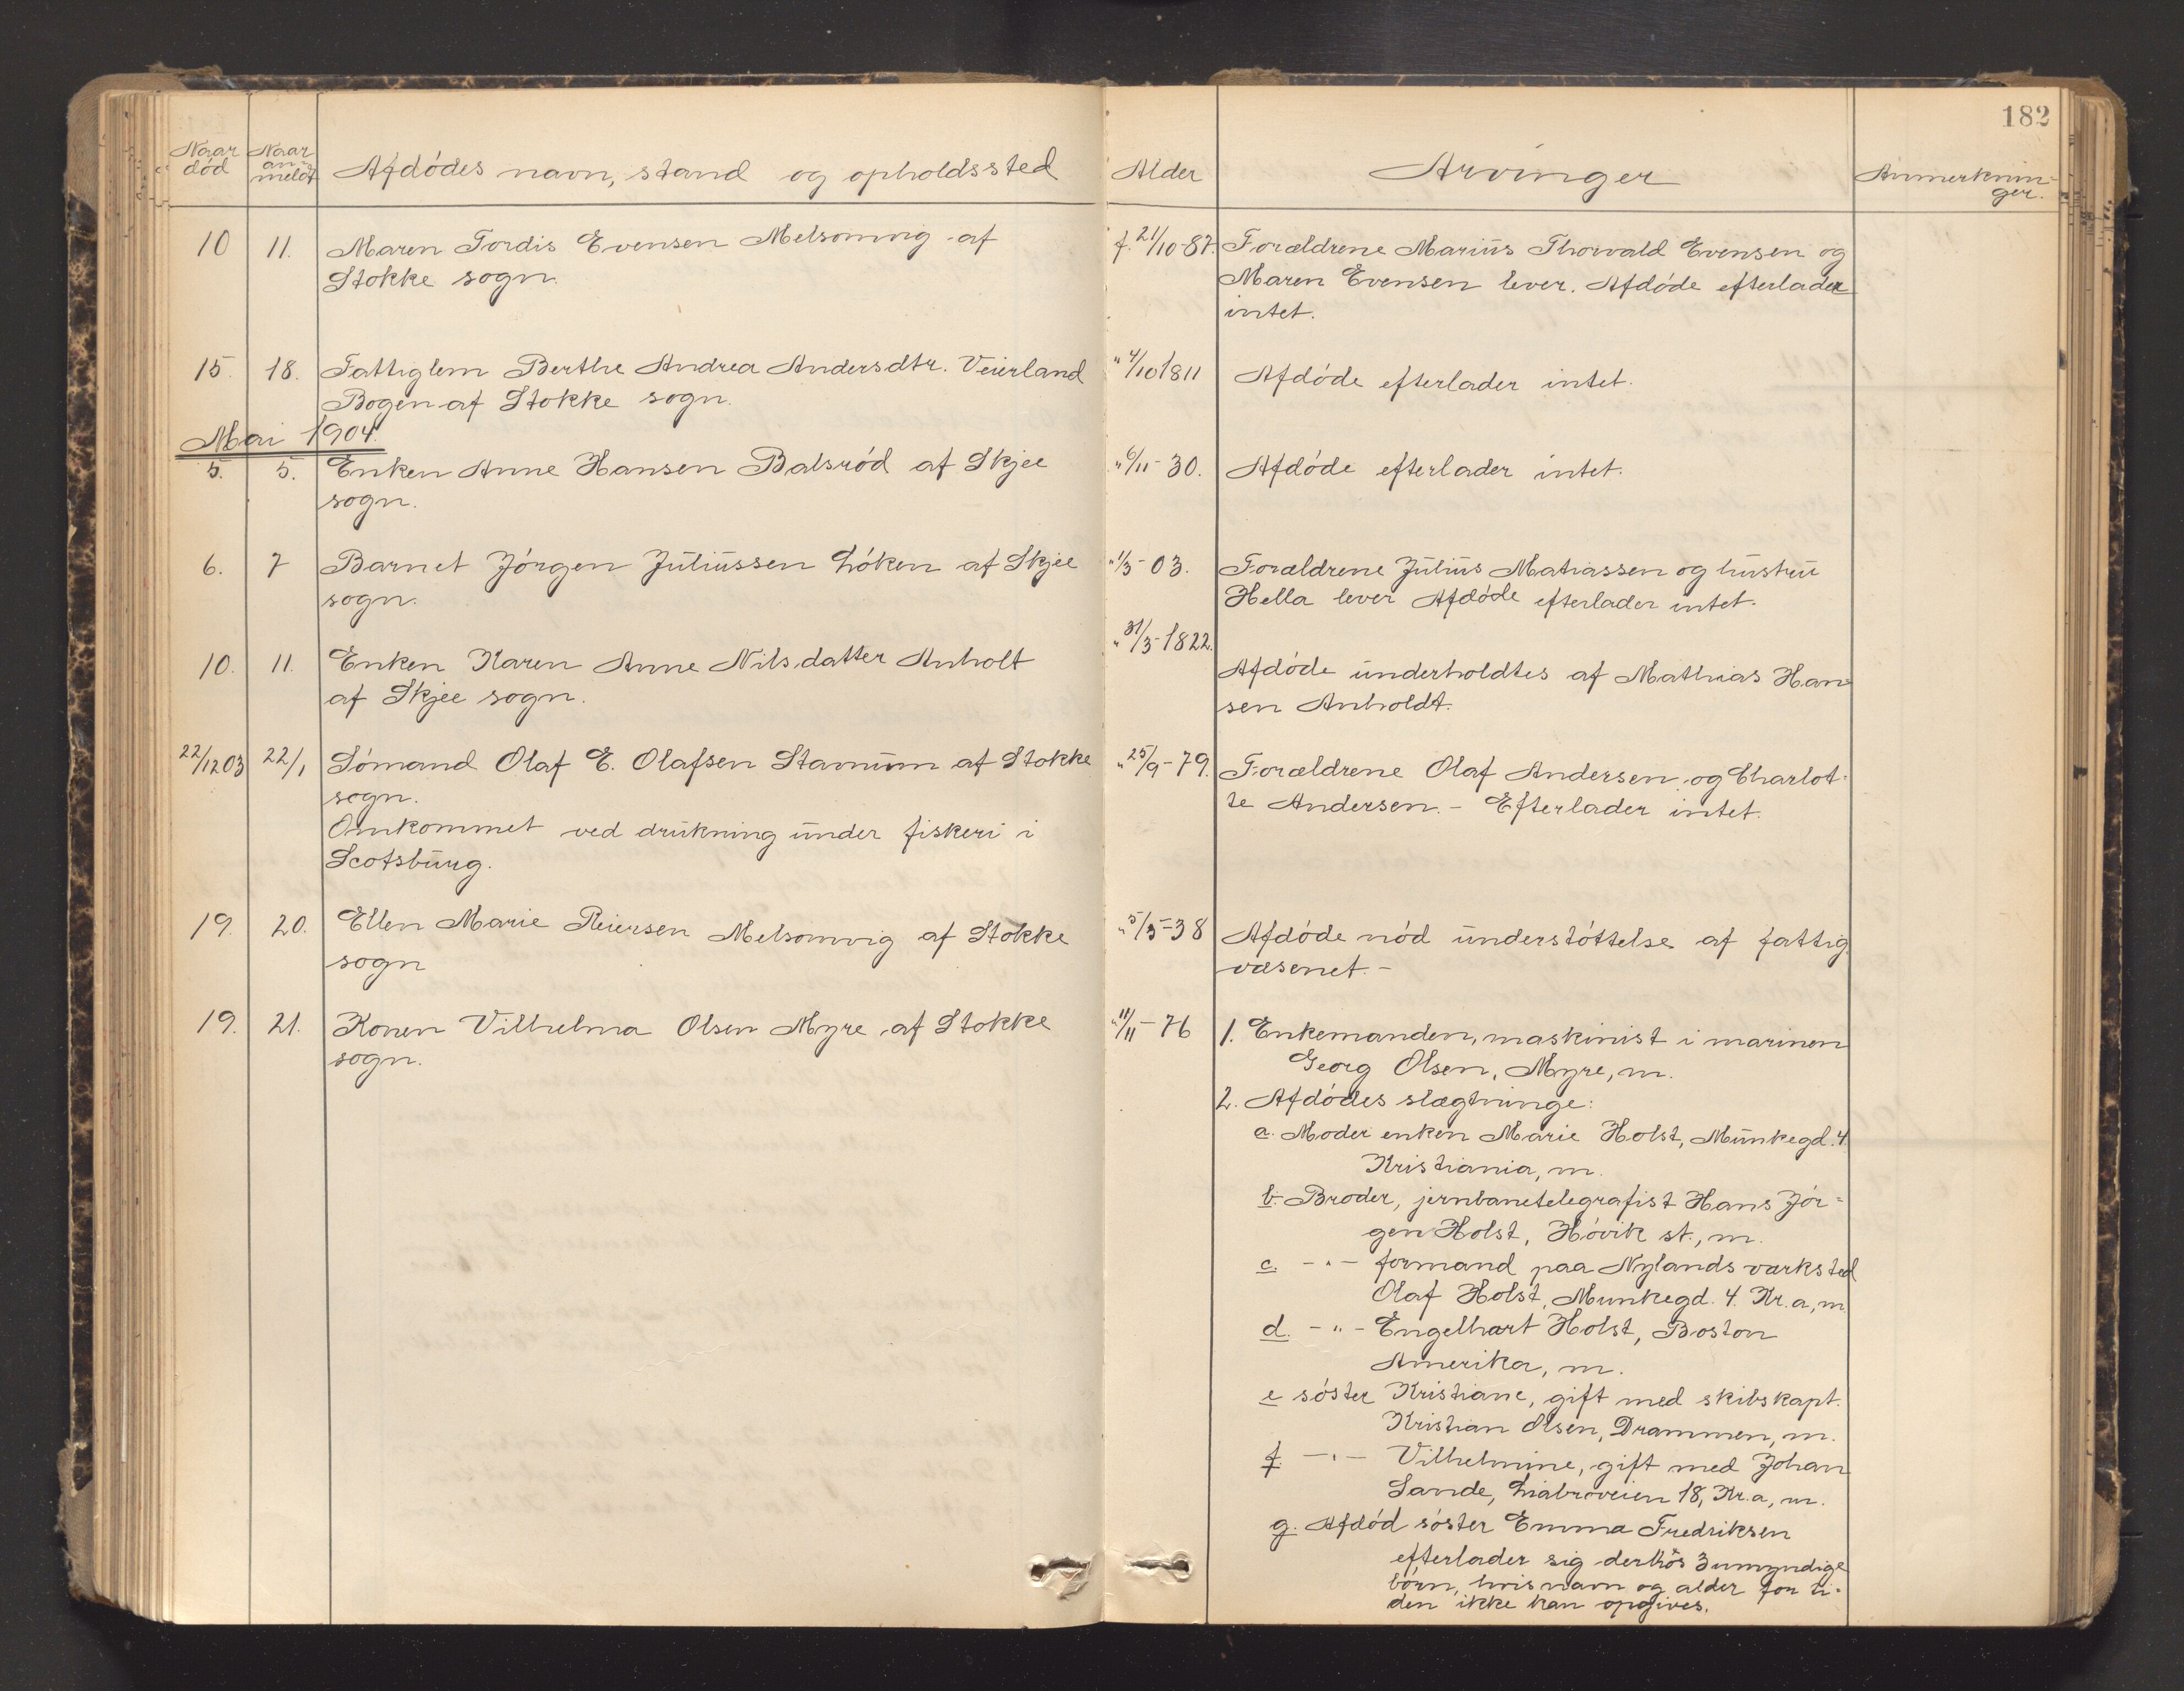 182
Naar død
Naar an- meldt
Afdødes navn, stand og opholdssted
Alder
Arvinger
Anmerkninger.
10
11.
Maren Tordis Evensen Melsomvig af
Stokke sogn.
f. 21/10-87.
Forældrene Marius Thorvald Evensen og
Maren Evensen lever. Afdøde efterlader
intet.
15.
18.
Fattiglem Berthe Andrea Andersdtr. Veierland
Bogen af Stokke sogn.
" 4/10 1811
Afdøde efterlader intet.
Mai 1904.
5.
5.
Enken Anne Hansen Balsrød af Skjee
sogn.
" 6/11-30.
Afdøde efterlader intet.
6.
7
Barnet Jørgen Juliussen Løken af Skjee
sogn.
" 1/3-03.
Forældrene Julius Mathiassen og hustru
Hella lever Afdøde efterlader intet.
10.
11.
Enken Karen Anne Nilsdatter Anholt
af Skjee sogn.
" 31/3-1822.
Afdøde underholdtes af Mathias Han=
sen Anholdt.
22/12 03
22/1
Sømand Olaf E. Olafsen Stavnum af Stokke
sogn.
Omkommet ved drukning under fiskeri i
Scotsburg.
" 25/9-79.
Forældrene Olaf Andersen og Charlot-
te Andersen. - Efterlader intet.
19.
20.
Ellen Marie Reiersen Melsomvig af Stokke
sogn
" 5/3-38
Afdøde nød understøttelse af fattig
væsenet. -
19.
21.
Konen Vilhelma Olsen Myre af Stokke
sogn.
" 11/11-76
1. Enkemanden, maskinist i marinen
Georg Olsen, Myre, m.
2. Afdødes slægtninge:
a. Moder enken Marie Holst, Munkegd. 4.
Kristiania, m.
b. Broder, jernbanetelegrafist Hans Jør=
gen Holst, Høvik st., m.
c. -"- formand paa Nylands værksted
Olaf Holst, Munkegd. 4. Kr.a, m.
d. -"- Engelhart Holst, Boston
Amerika, m.
e søster Kristiane, gift med skibskapt.
Kristian Olsen, Drammen, m.
f. -"- Vilhelmine, gift med Johan
Sande, Liabroveien 18, Kr.a, m.
g. Afdød søster Emma Fredriksen
efterlader sig derhos 3 umyndige
børn, hvis navn og alder for ti-
den ikke kan opgives.